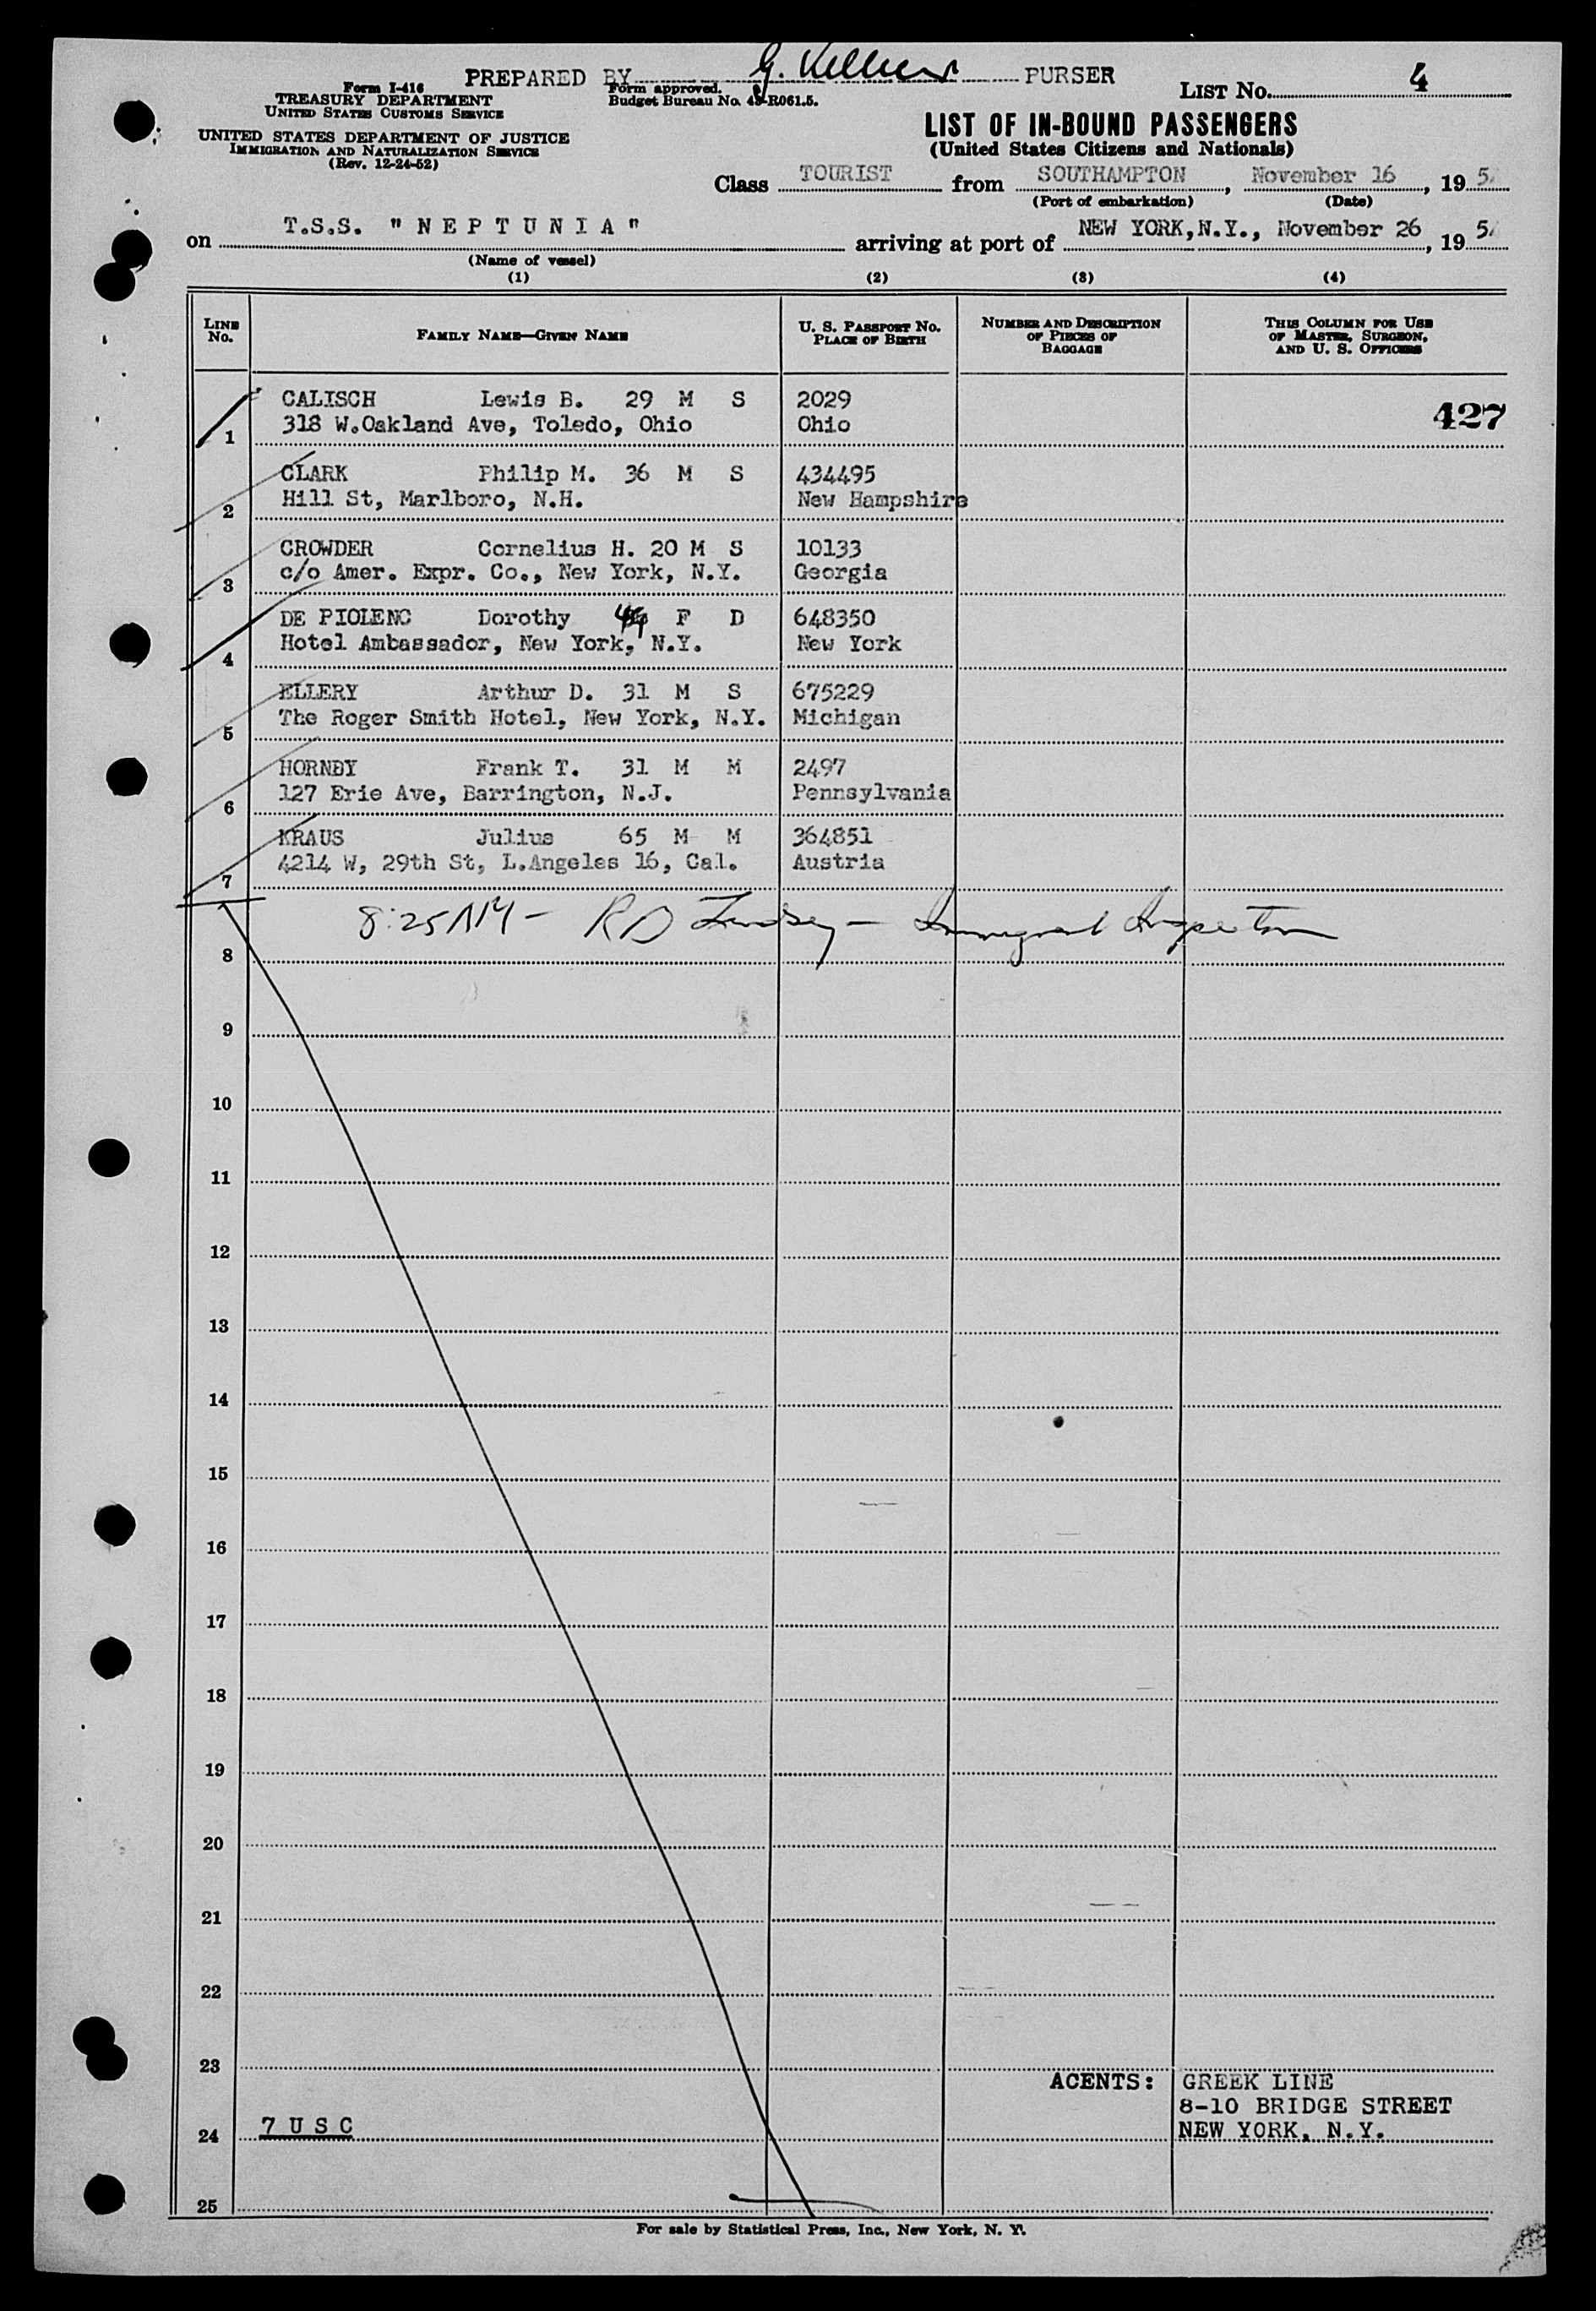 PREPARED BY G. PURSER
Form I-416
TREASURY DEPARTMENT
UNITED STATES CUSTOMS SERVICE
UNITED STATES DEPARTMENT OF JUSTICE
IMMIGRATION AND NATURALIZATION SERVICE
(Rev. 12-24-52)
Form approved.
Budget Bureau No. 43-R061.5.
LIST NO. 4
LIST OF IN-BOUND PASSENGERS
(United States Citizens and Nationals)
Class TOURIST from SOUTHAMPTON, November 16, 19 5
(Port of embarkation) (Date)
on T.S.S. "NEPTUNIA" arriving at port of NEW YORK,N.Y., November 26, 19 5
(Name of vessel)
(1) (2) (3) (4)
LINE NO. FAMILY NAME—GIVEN NAME U. S. PASSPORT NO. PLACE OF BIRTH NUMBER AND DESCRIPTION OF PIECES OF BAGGAGE THIS COLUMN FOR USE OF MASTER, SURGEON, AND U. S. OFFICERS
CALISCH Lewis B. 29 M S 2029 427
1 318 W.Oakland Ave, Toledo, Ohio Ohio
CLARK Philip M. 36 M S 434495
2 Hill St, Marlboro, N.H. New Hampshire
CROWDER Cornelius H. 20 M S 10133
3 c/o Amer. Expr. Co., New York, N.Y. Georgia
DE PIOLENC Dorothy F D 648350
4 Hotel Ambassador, New York, N.Y. New York
ELLERY Arthur D. 31 M S 675229
5 The Roger Smith Hotel, New York, N.Y. Michigan
HORNBY Frank T. 31 M M 2497
6 127 Erie Ave, Barrington, N.J. Pennsylvania
KRAUS Julius 65 M M 364851
7 4214 W, 29th St, L.Angeles 16, Cal. Austria
8:25 AM - R D Lindsey - Immigrant Inspector
8
9
10
11
12
13
14
15
16
17
18
19
20
21
22
23
AGENTS: GREEK LINE
8-10 BRIDGE STREET
24 7 U S C NEW YORK, N.Y.
25
For sale by Statistical Press, Inc., New York, N. Y.